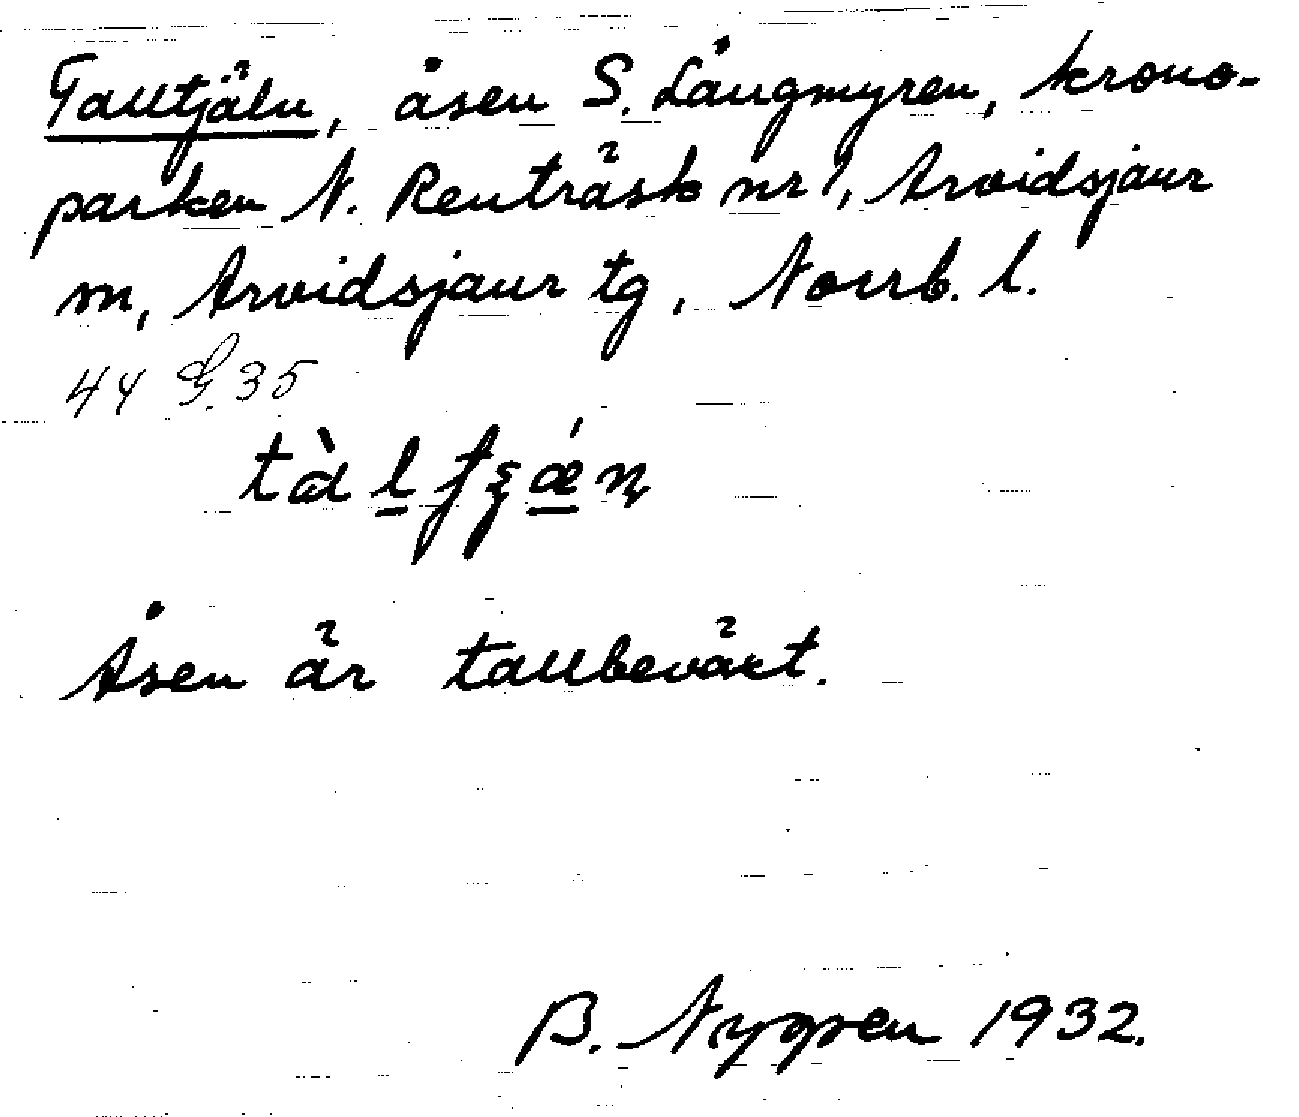 Talltjäln, åsen S. Långmyren, krono-
parken N. Renträsk nr 1, Arvidsjaur
m, Arvidsjaur tg, Norrb. l.
44 35
Åsen är tallbeväxt.
B. Nygren 1932.